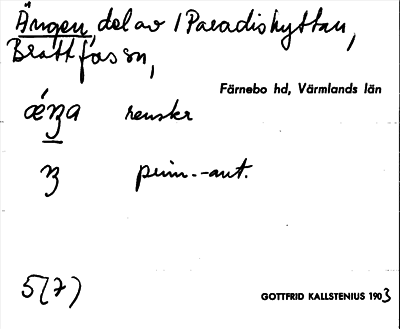 Ängen, del av 1 Paradishyttan,
Brattfors sn,
Färnebo hd, Värmlands län
ǽŋa renskr
ŋ prim.-ant.
5(7)
GOTTFRID KALLSTENIUS 1903